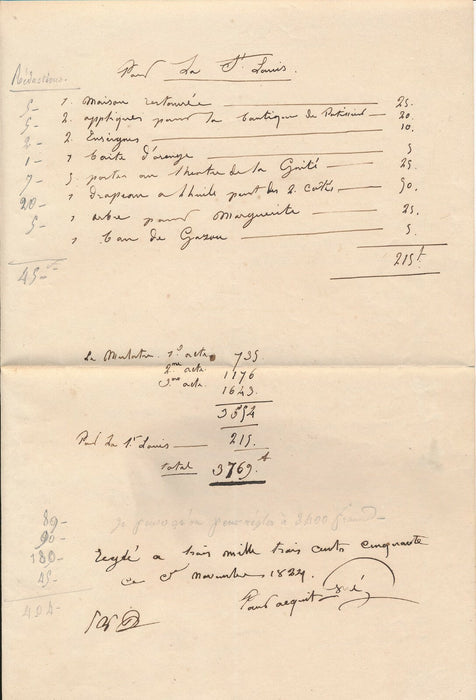 Pour La St Louis.
Réductions.
5 - 1. Maison restaurée 25.
5 - 2. appliques pour la boutique de Patissier 20.
2 - 2. Enseignes 10.
1 - 1 boite d'orange 5
7 - 5. portes au theatre de la Gaité 25.
20 - 1 drapeau a l'huile peint des 2 cotés 90.
5 - 1 arbre pour Marguerite 25.
1 banc de Gazon 5.
45 - 215f
Le Mulatre. 1er acte. 735
2me acte. 1176
3me acte. 1643.
3554
Pour La St Louis 215.
total 3769.f
89 - Je pense qu'on peut régler à 3400 francs
90 -
180 - Reglé a trois mille trois cents cinquante
45 - ce 5 novembre 1824.
404 - Pour acquit